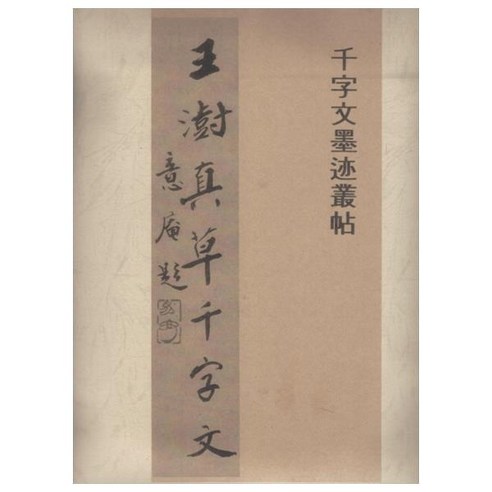 千字文墨迹叢帖
王澍真草千字文
意庵題